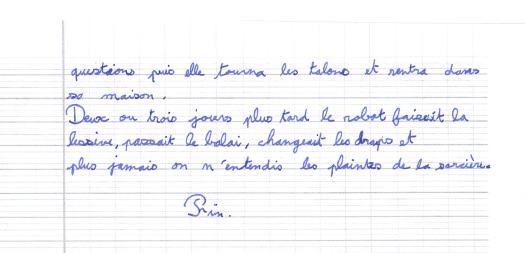 questions puis elle tourna les talons et rentra dans
sa maison.
Deux ou trois jours plus tard le robot faisait la
lessive, passait le balai, changeait les draps et
plus jamais on n'entendis les plaintes de la sorcière.
Fin.